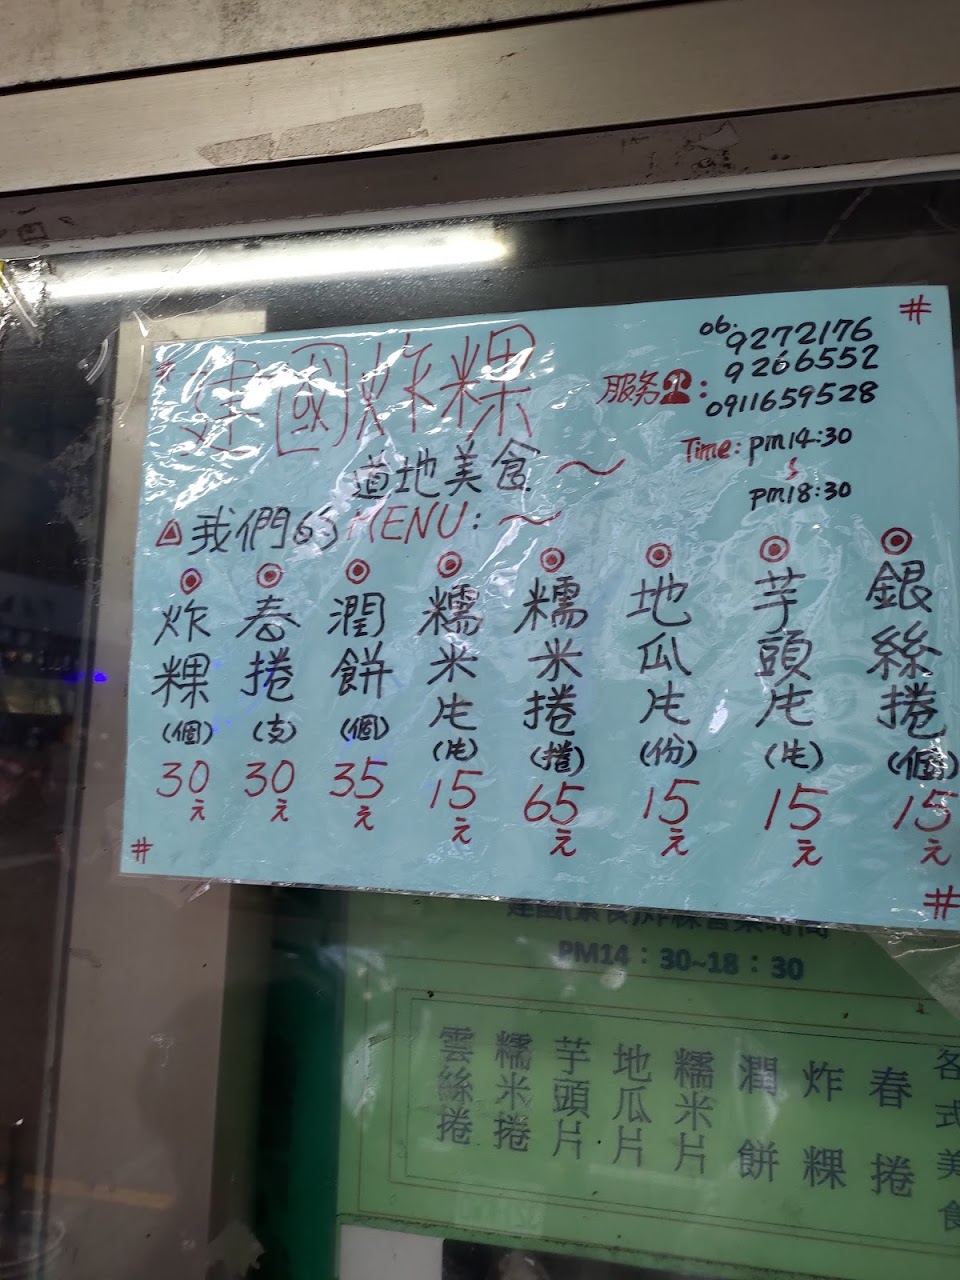 建國炸粿
06.9272176
9266552
服务：0911659528
道地美食～
Time: pm14:30
pm18:30
我們的MENU：～
炸粿(個)30元
春捲(支)30元
潤餅(個)35元
糯米片(片)15元
糯米捲(捲)65元
地瓜片(份)15元
芋頭片(片)15元
銀絲捲(個)15元
建國(素食)炸粿營業時間
PM14：30~18：30
各式美食
春捲
炸粿
潤餅
糯米片
地瓜片
芋頭片
糯米捲
雲絲捲